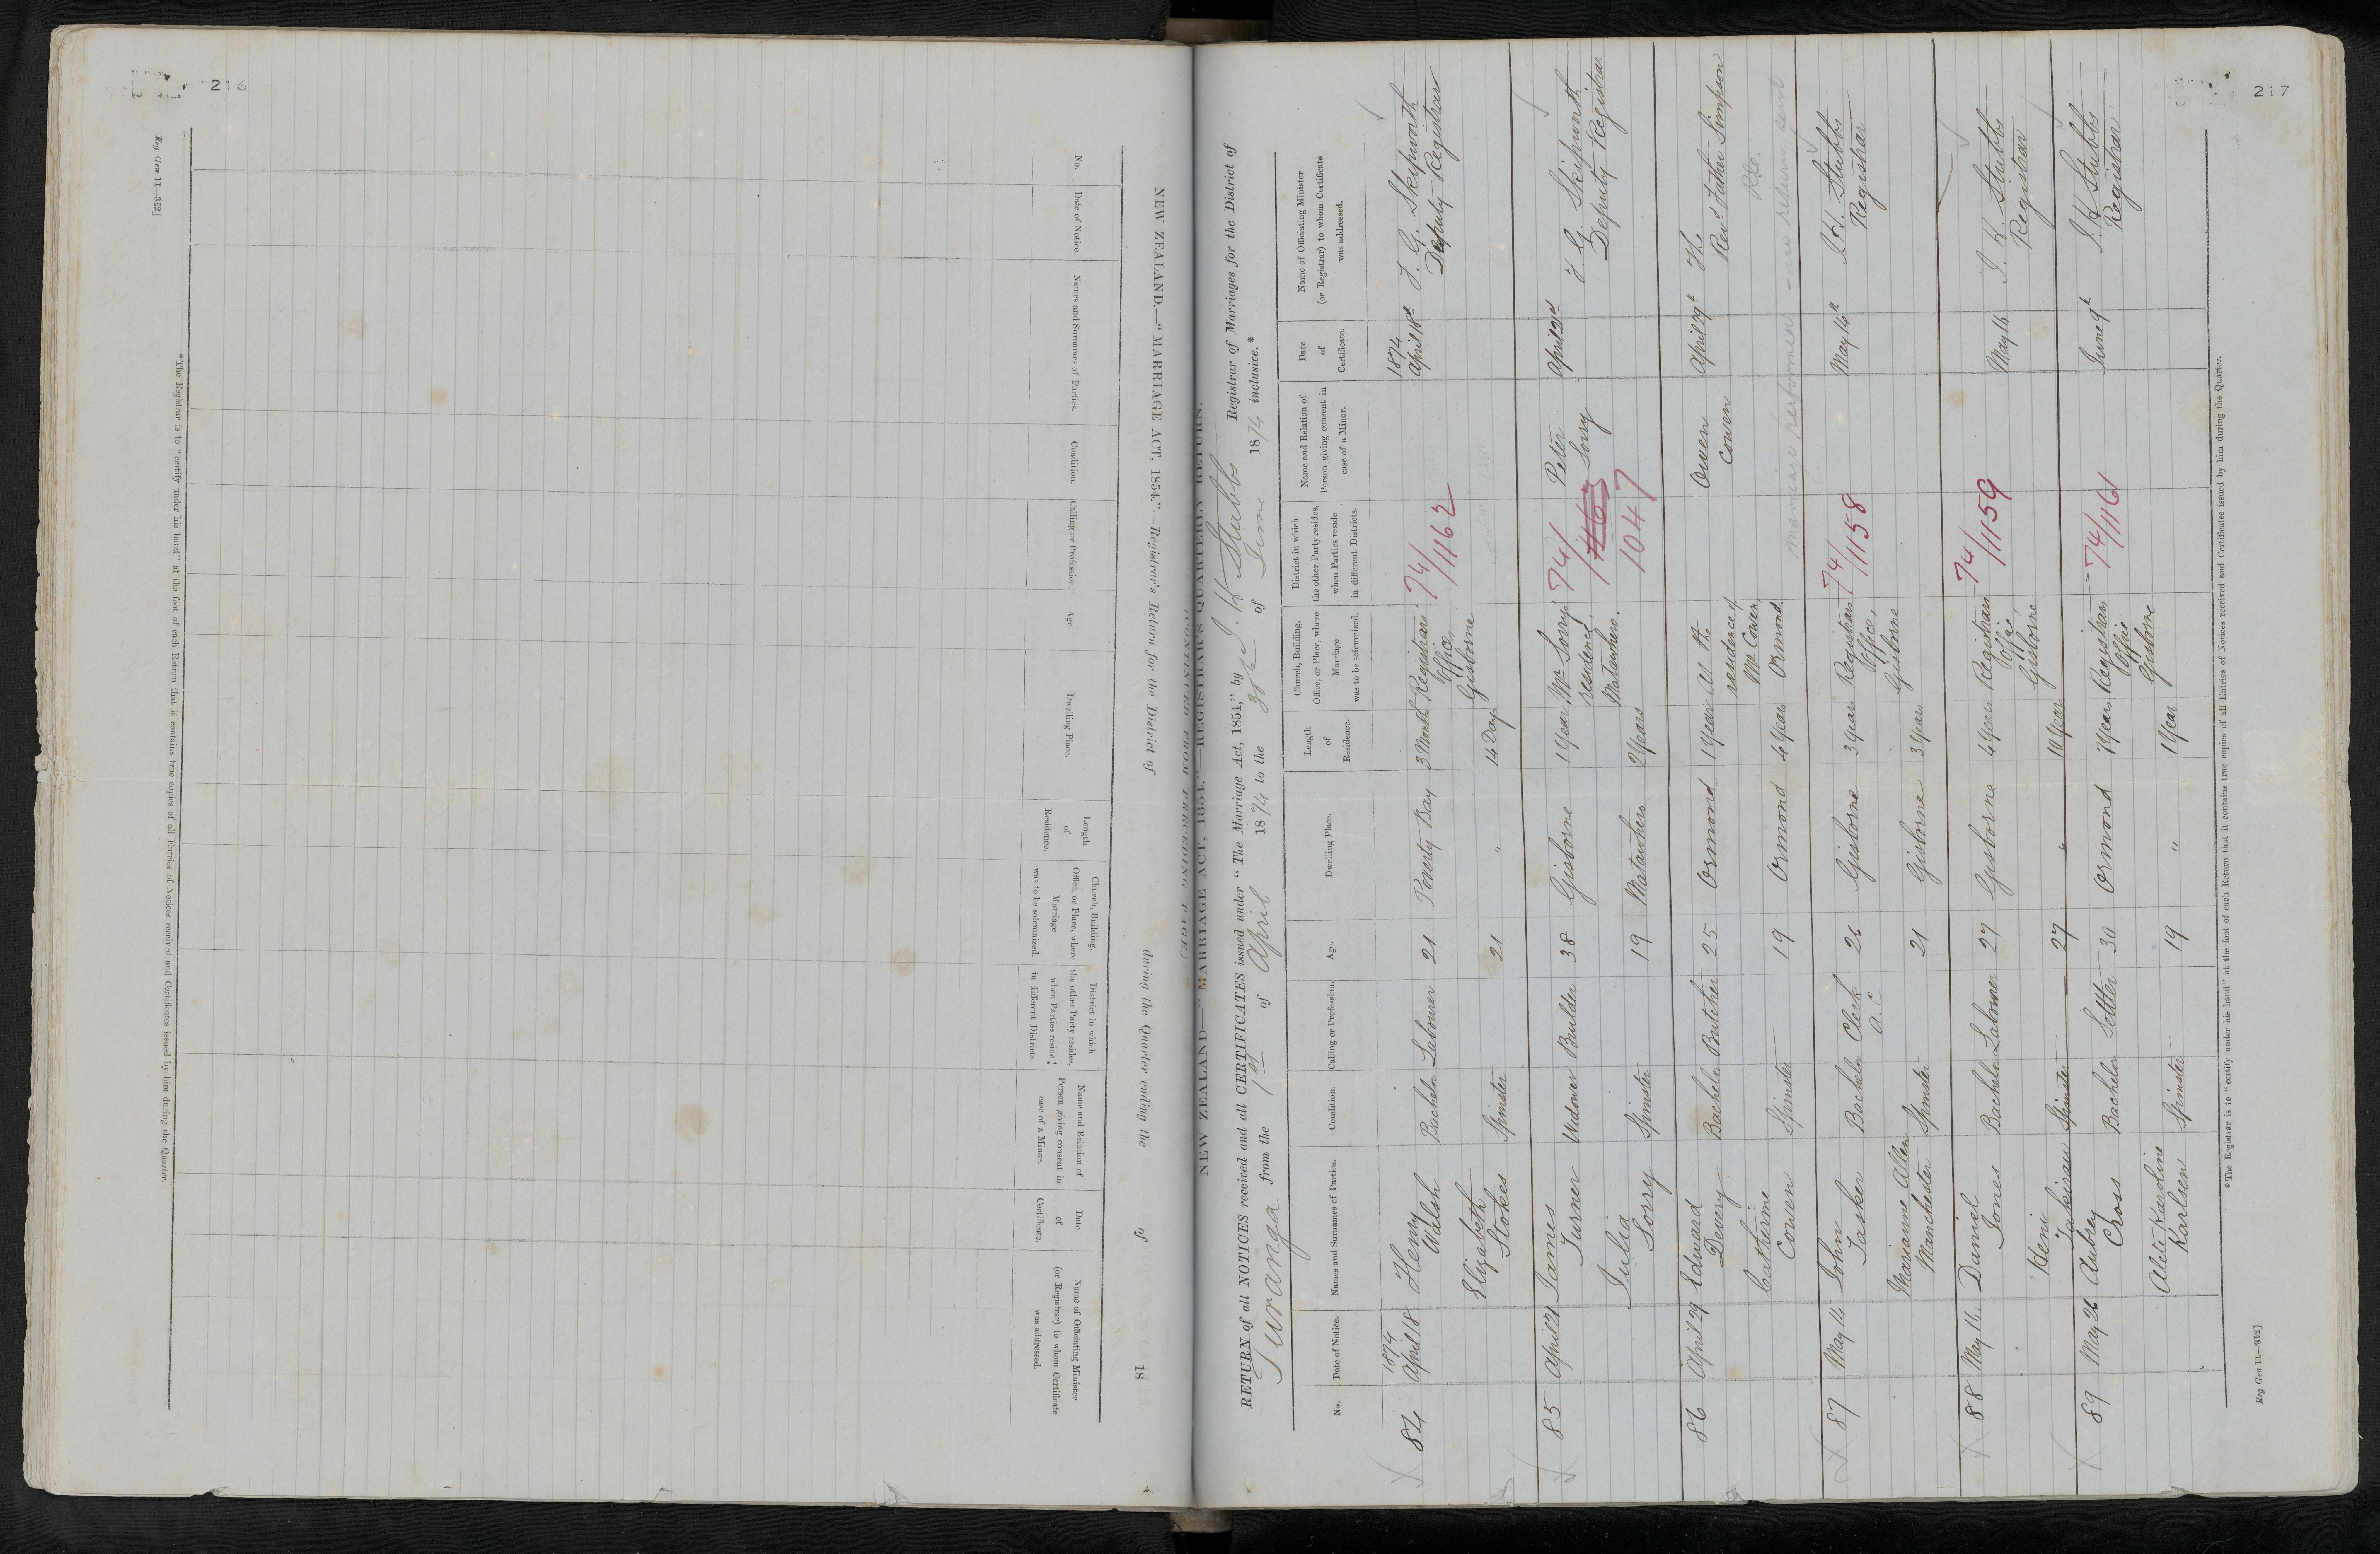 216
Reg Gen 11—312]
NEW ZEALAND.—"MARRIAGE ACT, 1854."—Registrar's Return for the District of during the Quarter ending the of 18
No.
Date of Notice.
Names and Surnames of Parties.
Condition.
Calling or Profession.
Age.
Dwelling Place.
Length
of
Residence.
Church, Building,
Office, or Place, where
Marriage
was to be solemnized.
District in which
the other Party resides,
when Parties reside
in different Districts.
Name and Relation of
Person giving consent in
case of a Minor.
Date
of
Certificate.
Name of Officiating Minister
(or Registrar) to whom Certificate
was addressed.
*The Registrar is to "certify under his hand" at the foot of each Return that it contains true copies of all Entries of Notices received and Certificates issued by him during the Quarter.
217
CONTINUED FROM PRECEDING PAGE
NEW ZEALAND—"MARRIAGE ACT, 1854."—REGISTRAR'S QUARTERLY RETURN.
RETURN of all NOTICES received and all CERTIFICATES issued under "The Marriage Act, 1854," by J. H. Stubbs Registrar of Marriages for the District of
Turanga from the 1st of April 1874 to the 30th of June 1874 inclusive.*
No.
Date of Notice.
Names and Surnames of Parties.
Condition.
Calling or Profession.
Age.
Dwelling Place.
Length
of
Residence.
Church, Building,
Office, or Place, where
Marriage
was to be solemnized.
District in which
the other Party resides,
when Parties reside
in different Districts.
Name and Relation of
Person giving consent in
case of a Minor.
Date
of
Certificate.
Name of Officiating Minister
(or Registrar) to whom Certificate
was addressed.
84
1874
April 18
Henry
Walsh
Bachelor
Labourer
21
Poverty Bay
3 Month
Registrars
Office,
Gisborne
74/1162
1874
April 18th
F. G. Skipworth
Deputy Registrar
Elizabeth
Stokes
Spinster
21
"
14 Day
85
April 21
James
Turner
Widower
Builder
38
Gisborne
1 Year
Mr Sorry's
residence,
Matawhero.
74/1163
1047
Peter
Sorry
April 21st
F. G. Skipworth
Deputy Registrar
Julia
Sorry
Spinster
19
Matawhero
2 Years
86
April 29
Edward
Devery
Bachelor
Butcher
25
Ormond
1 Year
At the
residence of
Mr Cowen,
Ormond
Owen
Cowen
April 29th
The
Revd Father Simpson
Catherine
Cowen
Spinster
19
Ormond
4 Years
marriage performed - no return sent
87
May 14
John
Tasker
Bachelor
Clerk
A. C.
26
Gisborne
3 Years
Registrars
Office,
Gisborne
74/1158
May 14th
J. H. Stubbs
Registrar
Marianne Allen
Manchester
Spinster
21
Gisborne
3 Years
88
May 16
Daniel
Jones
Bachelor
Labourer
27
Gisborne
4 Years
Registrars
Office,
Gisborne
74/1159
May 16
J. H. Stubbs
Registrar
Heni
Spinster
27
"
10 Year
89
May 26
Aubrey
Cross
Bachelor
Settler
30
Ormond
Years
Registrars
Office
Gisborne
74/1161
June 9th
J. H. Stubbs
Registrar
Alete Karoline
Karlsen
Spinster
19
"
1 Year
*The Registrar is to "certify under his hand" at the foot of each Return that it contains true copies of all Entries of Notices received and Certificates issued by him during the Quarter.
Reg Gen 11—312]